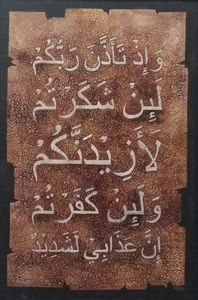 وَإِذْ تَأَذَّنَ رَبُّكُمْ
لَئِنْ شَكَرْتُمْ
لَأَزِيدَنَّكُمْ
وَلَئِنْ كَفَرْتُمْ
إِنَّ عَذَابِي لَشَدِيدٌ